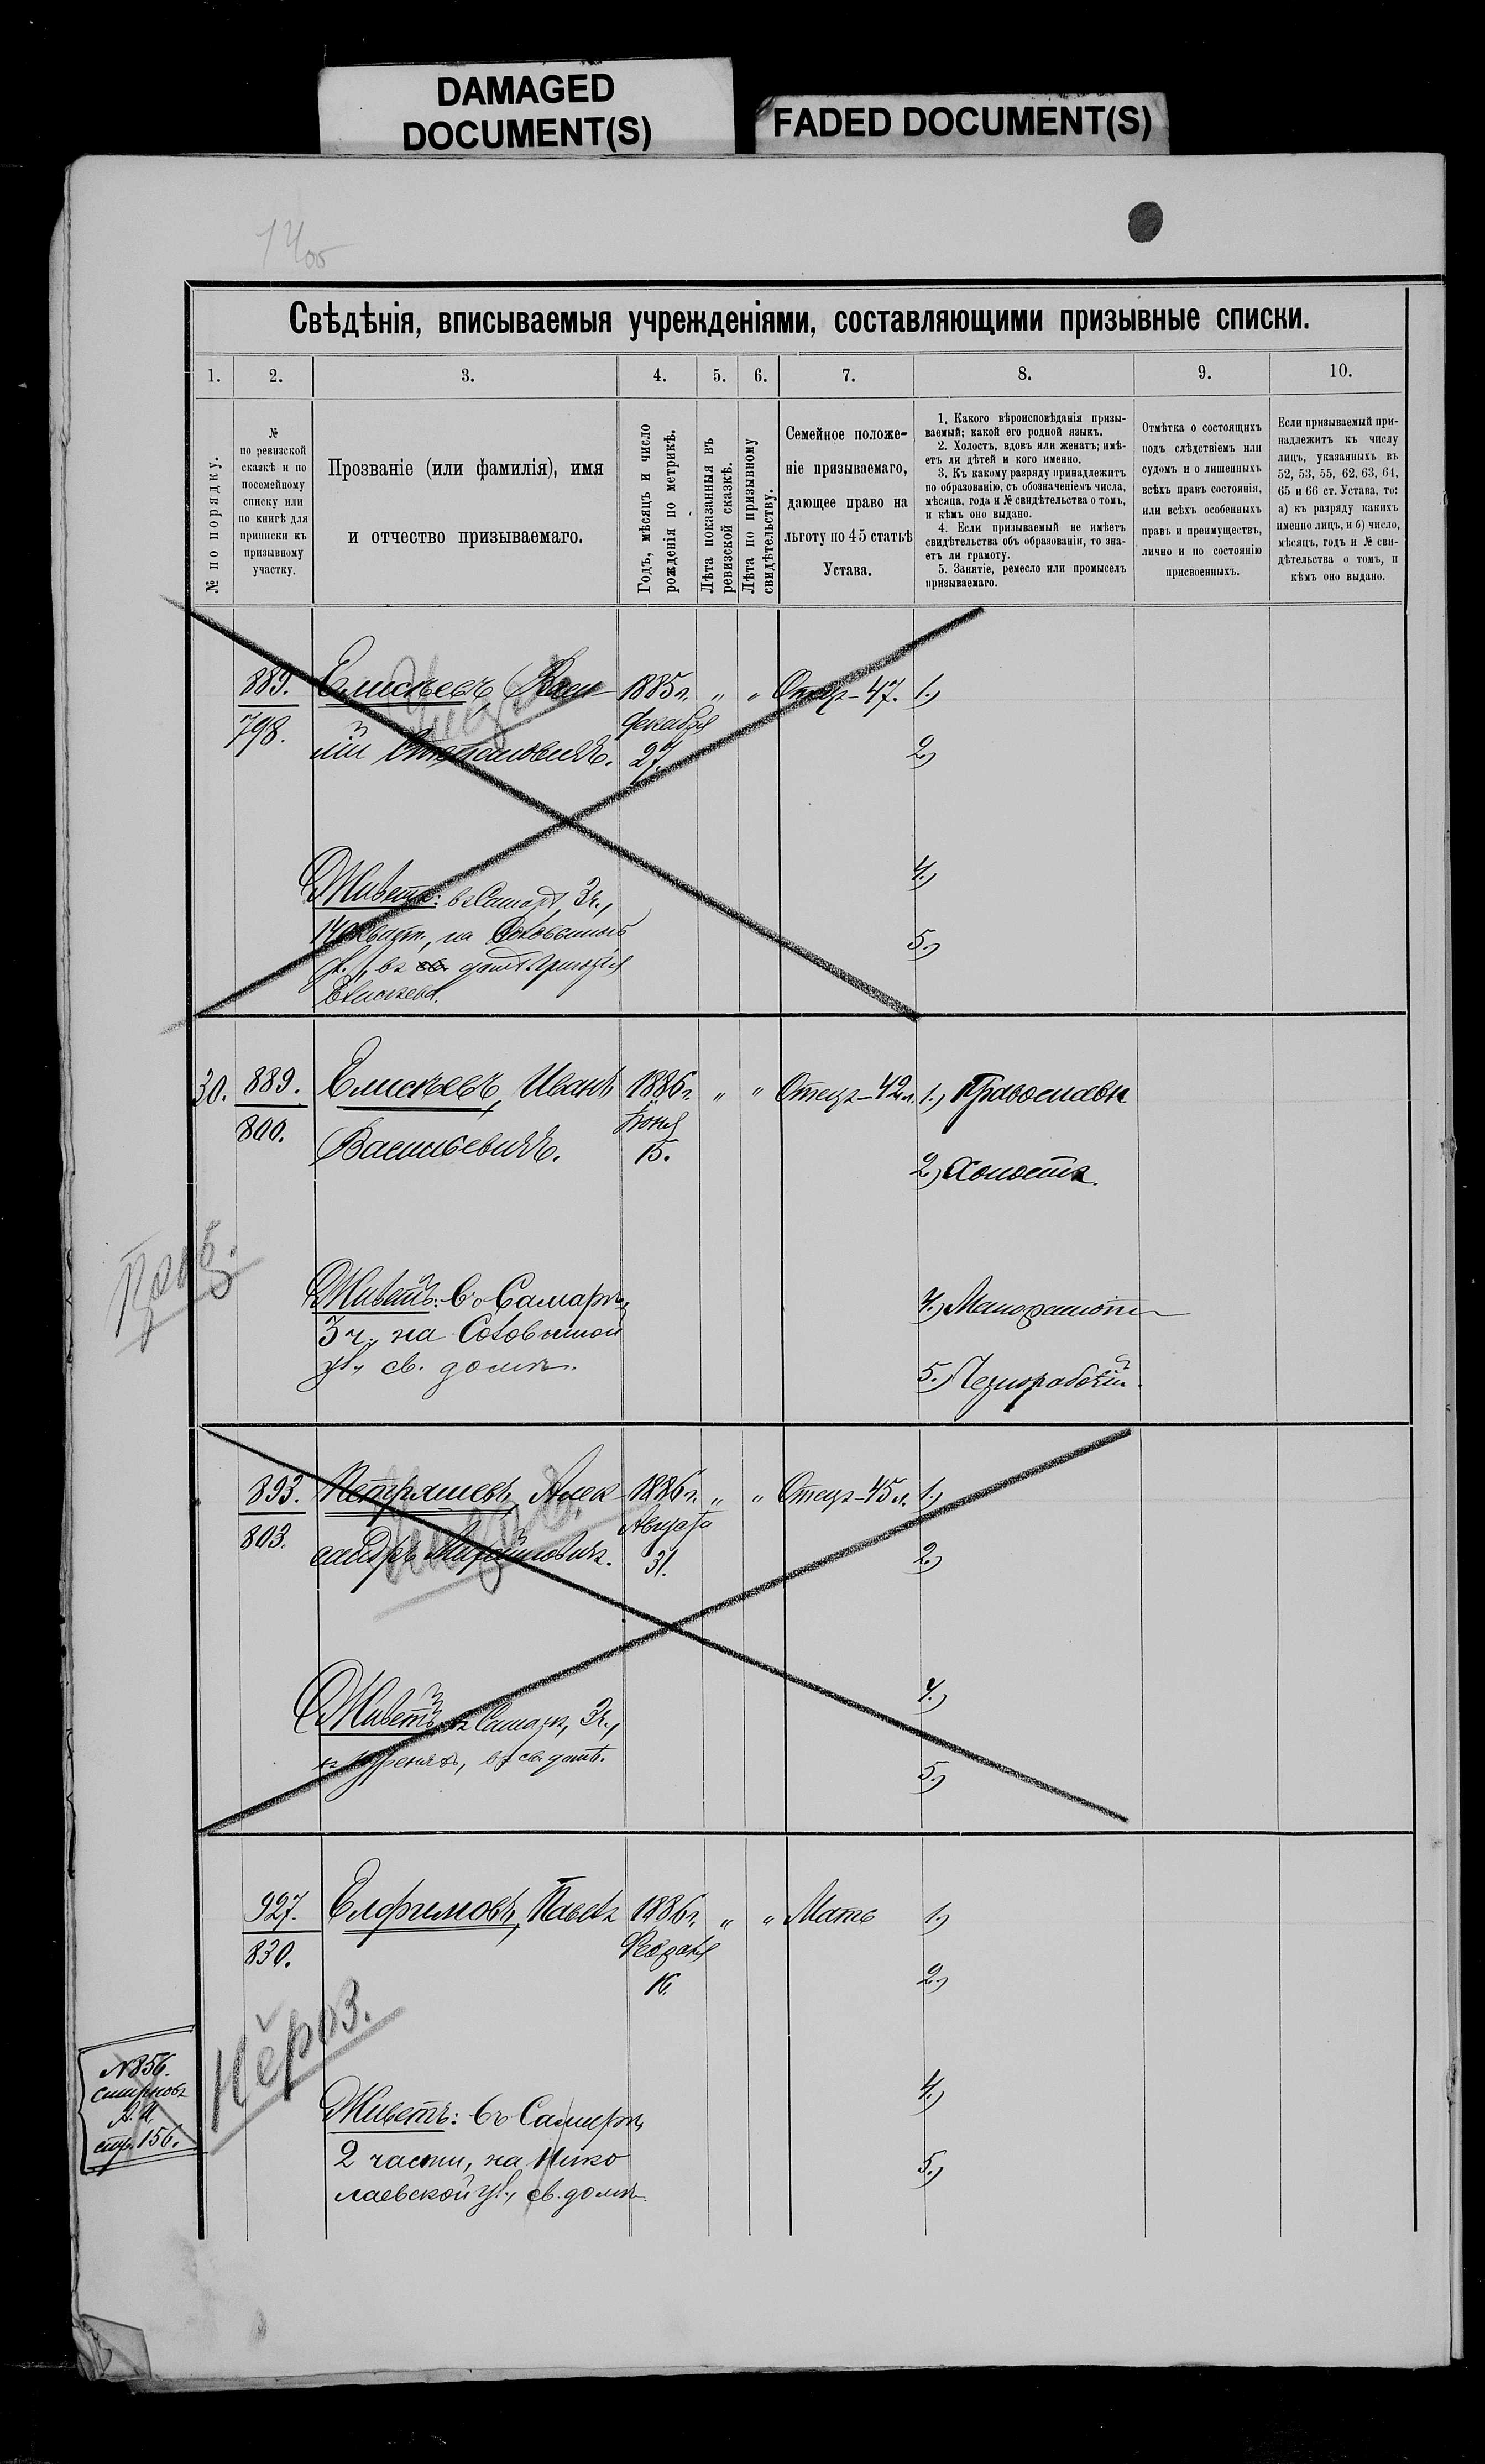 DAMAGED
DOCUMENT(S)
FADED DOCUMENT(S)
Свѣдѣнія, вписываемыя учрежденіями, составляющими призывные списки.
1. 2. 3. 4. 5. 6. 7. 8. 9. 10.
№ по порядку.
№
по ревизской
сказкѣ и по
посемейному
списку или
по книгѣ для
приписки къ
призывному
участку.
Прозваніе (или фамилія), имя
и отчество призываемаго.
Годъ, мѣсяцъ и число
рожденія по метрикѣ.
Лѣта показанныя въ
ревизской сказкѣ.
Лѣта по призывному
свидѣтельству.
Семейное положе-
ніе призываемаго,
дающее право на
льготу по 45 статьѣ
Устава.
1. Какого вѣроисповѣданія призы-
ваемый; какой его родной языкъ.
2. Холостъ, вдовъ или женатъ; имѣ-
етъ ли дѣтей и кого именно.
3. Къ какому разряду принадлежитъ
по образованію, съ обозначеніемъ числа,
мѣсяца, года и № свидѣтельства о томъ,
и кѣмъ оно выдано.
4. Если призываемый не имѣетъ
свидѣтельства объ образованіи, то зна-
етъ ли грамоту.
5. Занятіе, ремесло или промыселъ
призываемаго.
Отмѣтка о состоящихъ
подъ слѣдствіемъ или
судомъ и о лишенныхъ
всѣхъ правъ состоянія,
или всѣхъ особенныхъ
правъ и преимуществъ,
лично и по состоянію
присвоенныхъ.
Если призываемый при-
надлежитъ къ числу
лицъ, указанныхъ въ
52, 53, 55, 62, 63, 64,
65 и 66 ст. Устава, то:
а) къ разряду какихъ
именно лицъ, и б) число,
мѣсяцъ, годъ и № сви-
дѣтельства о томъ, и
кѣмъ оно выдано.
889. Елисѣевъ Васи 1885 г. „ „ Отецъ-47. 1.)
798. лій Степановичъ. Декабря
27. 2.)
Живетъ: въ Самарѣ, 3 ч., 4.)
140 кварт., на Соловьиной 5.)
ул., въ домѣ Григорія
Елисѣева.
30. 889. Елисѣевъ, Иванъ 1886 г. „ „ Отецъ-42 л. 1.) Православн
800. Васильевичъ. Іюня
15. 2.) Холостъ.
Живетъ: въ Самарѣ, 4.) Малограмотн
3 ч., на Соловьиной
ул., св. домѣ. 5.) Чернорабочій.
893. Петряшевъ, Алек 1886 г. „ „ Отецъ-45 л. 1.)
803. сандръ Августа
31. 2.)
Живетъ въ Самарѣ, 3 ч., 4.)
въ св. домѣ. 5.)
927. Елфимовъ, Павелъ 1886 г. „ „ Мать 1.)
830. Февраля
16. 2.)
№856.
Смирновъ
А. И.
стр. 156.
Живетъ: въ Самарѣ, 4.)
2 части, на Нико 5.)
лаевской ул., св. домѣ.